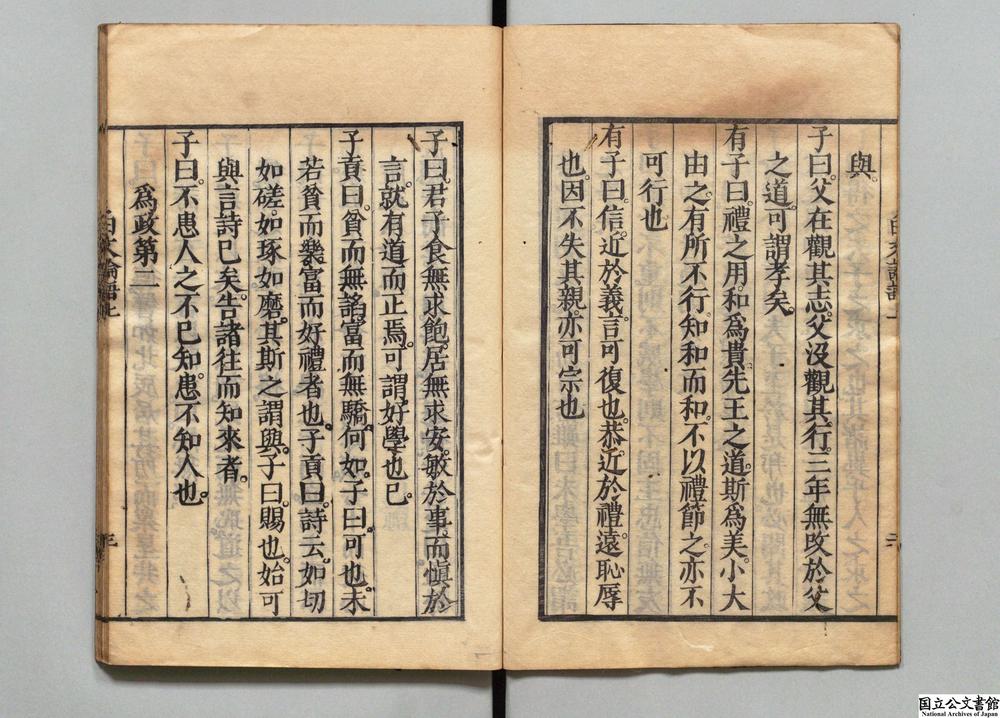 與。
子曰。父在觀其志。父沒觀其行。三年無攺於父
之道。可謂孝矣。
有子曰。禮之用。和爲貴。先王之道。斯爲美。小大
由之。有所不行。知和而和。不以禮節之。亦不
可行也
有子曰。信。近於義。言可復也。恭。近於禮。遠恥辱
也。因不失其親。亦可宗也
子曰。君子食無求飽。居無求安。敏於事。而愼於
言。就有道而正焉。可謂好學也已。
子貢曰。貧而無謟。富而無驕。何如。子曰。可也。未
若貧而樂。富而好禮者也。子貢曰。詩云。如切
如磋。如琢如磨。其斯之謂與。子曰。賜也。始可
與言詩已矣。告諸往而知來者。
子曰。不患人之不己知。患不知人也。
爲政第二
白文論語上
二
國立公文書館
National Archives of Japan